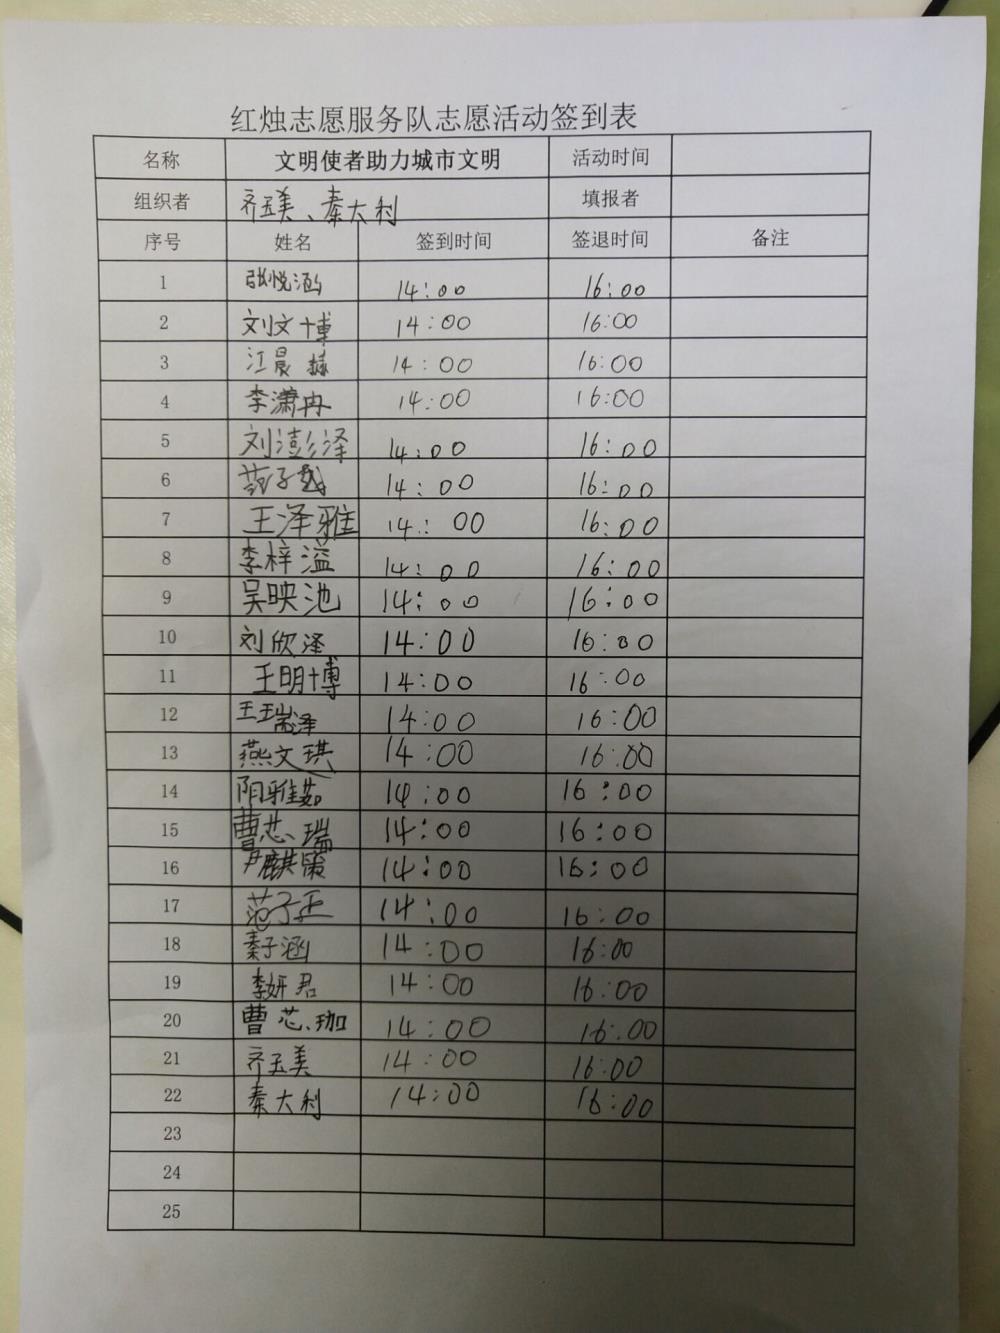 红烛志愿服务队志愿活动签到表
名称 文明使者助力城市文明 活动时间
组织者 齐玉美、秦大利 填报者
序号 姓名 签到时间 签退时间 备注
1 张悦涵 14:00 16:00
2 刘文博 14:00 16:00
3 江晨 14:00 16:00
4 李潇冉 14:00 16:00
5 刘澎泽 14:00 16:00
6 范子越 14:00 16:00
7 王泽雅 14:00 16:00
8 李梓溢 14:00 16:00
9 吴映池 14:00 16:00
10 刘欣泽 14:00 16:00
11 王明博 14:00 16:00
12 王瑞泽 14:00 16:00
13 燕文琪 14:00 16:00
14 阳雅茹 14:00 16:00
15 曹芯瑞 14:00 16:00
16 尹麒策 14:00 16:00
17 范子正 14:00 16:00
18 秦子涵 14:00 16:00
19 李妍君 14:00 16:00
20 曹芯珈 14:00 16:00
21 齐玉美 14:00 16:00
22 秦大利 14:00 16:00
23
24
25